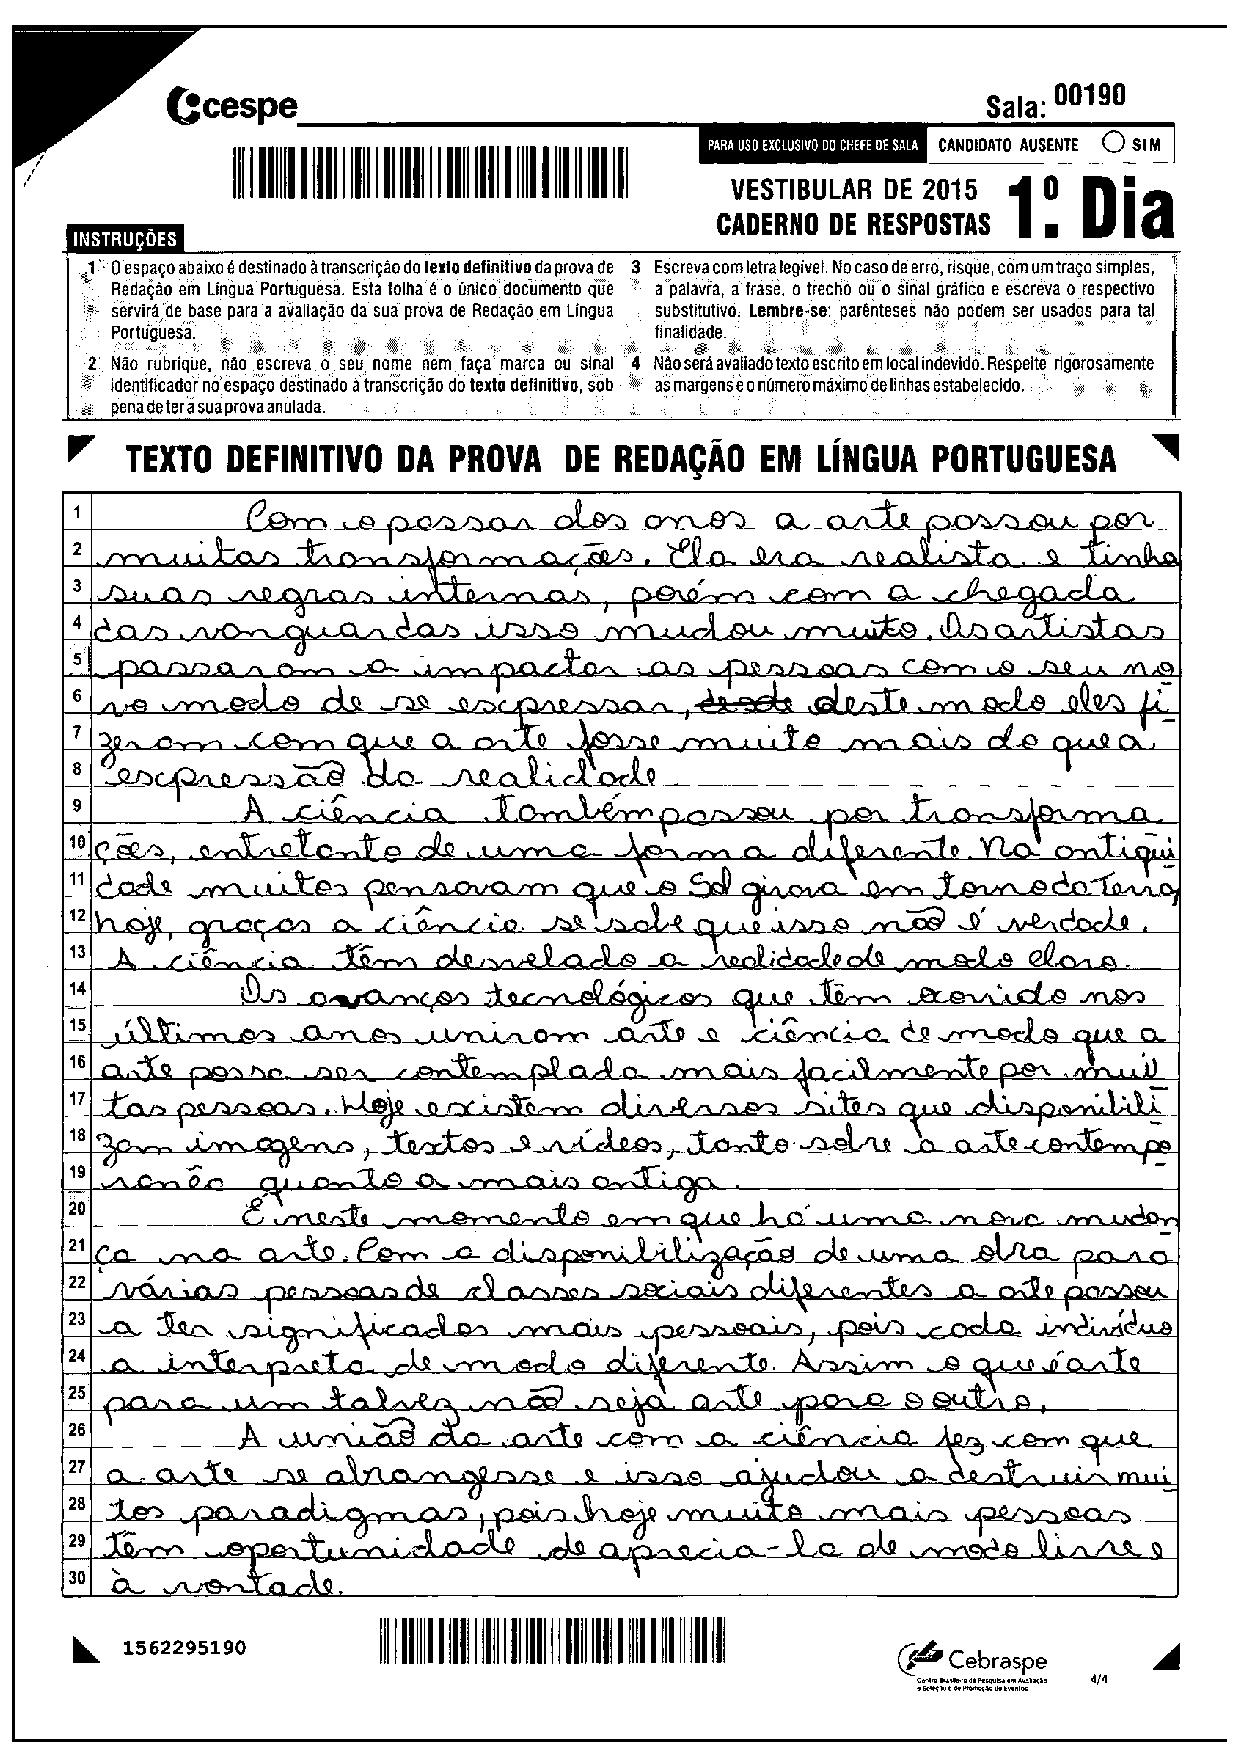 cespe
Sala: 00190
PARA USO EXCLUSIVO DO CHEFE DE SALA CANDIDATO AUSENTE SIM
VESTIBULAR DE 2015
CADERNO DE RESPOSTAS
1º. Dia
INSTRUÇÕES
1 O espaço abaixo é destinado à transcrição do texto definitivo da prova de
Redação em Língua Portuguesa. Esta folha é o único documento que
servirá de base para a avaliação da sua prova de Redação em Língua
Portuguesa.
2 Não rubrique, não escreva o seu nome nem faça marca ou sinal
identificador no espaço destinado à transcrição do texto definitivo, sob
pena de ter a sua prova anulada.
3 Escreva com letra legível. No caso de erro, risque, com um traço simples,
a palavra, a frase, o trecho ou o sinal gráfico e escreva o respectivo
substitutivo. Lembre-se: parênteses não podem ser usados para tal
finalidade.
4 Não será avaliado texto escrito em local indevido. Respeite rigorosamente
as margens e o número máximo de linhas estabelecido.
TEXTO DEFINITIVO DA PROVA DE REDAÇÃO EM LÍNGUA PORTUGUESA
1 Com o passar dos anos a arte passou por
2 muitas transformações. Ela era realista e tinha
3 suas regras internas, porém com a chegada
4 das vanguardas isso mudou muito. Os artistas
5 passaram a impactar as pessoas com o seu no
6 vo modo de se escpressar, desde deste modo eles fi
7 zeram com que a arte fosse muito mais do que a
8 escpressão da realidade
9 A ciência também passou por transforma
10 ções, entretanto de uma forma diferente. Na antigui
11 dade muitos pensavam que o Sol girava em torno da Terra,
12 hoje, graças a ciência se sabe que isso não é verdade.
13 A ciência têm desvelado a realidade de modo claro.
14 Os avanços tecnológicos que têm oxorrido nos
15 últimos anos uniram arte e ciência de modo que a
16 arte possa ser contemplada mais facilmente por mui
17 tas pessoas. Hoje existem diversos sites que disponibili
18 zam imagens, textos e vídeos, tanto sobre a arte contempo
19 ranêa quanto a mais antiga.
20 É neste momento em que há uma nova mudan
21 ça na arte. Com a disponibilização de uma obra para
22 várias pessoas de classes sociais diferentes a arte passou
23 a ter significados mais pessoais, pois cada indivíduo
24 a interpreta de modo diferente. Assim o que é arte
25 para um talvez não seja arte para o outro.
26 A união da arte com a ciência fez com que
27 a arte se abrangesse e isso ajudou a destruir mui
28 tos paradigmas, pois hoje muito mais pessoas
29 têm oportunidade de aprecia-la de modo livre e
30 à vontade.
1562295190
Cebraspe
Centro Brasileiro de Pesquisa em Avaliação
e Seleção e de Promoção de Eventos
4/4